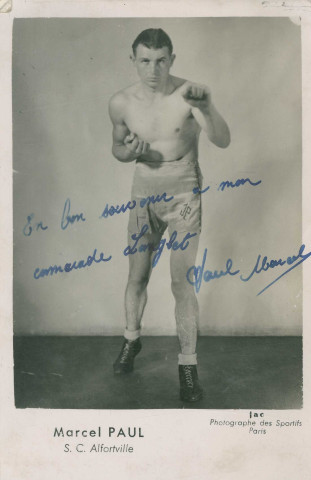 En bon souvenir à mon
camarade Langlet
Paul Marcel
Jac
Photographe des Sportifs
Paris
Marcel PAUL
S. C. Alfortville